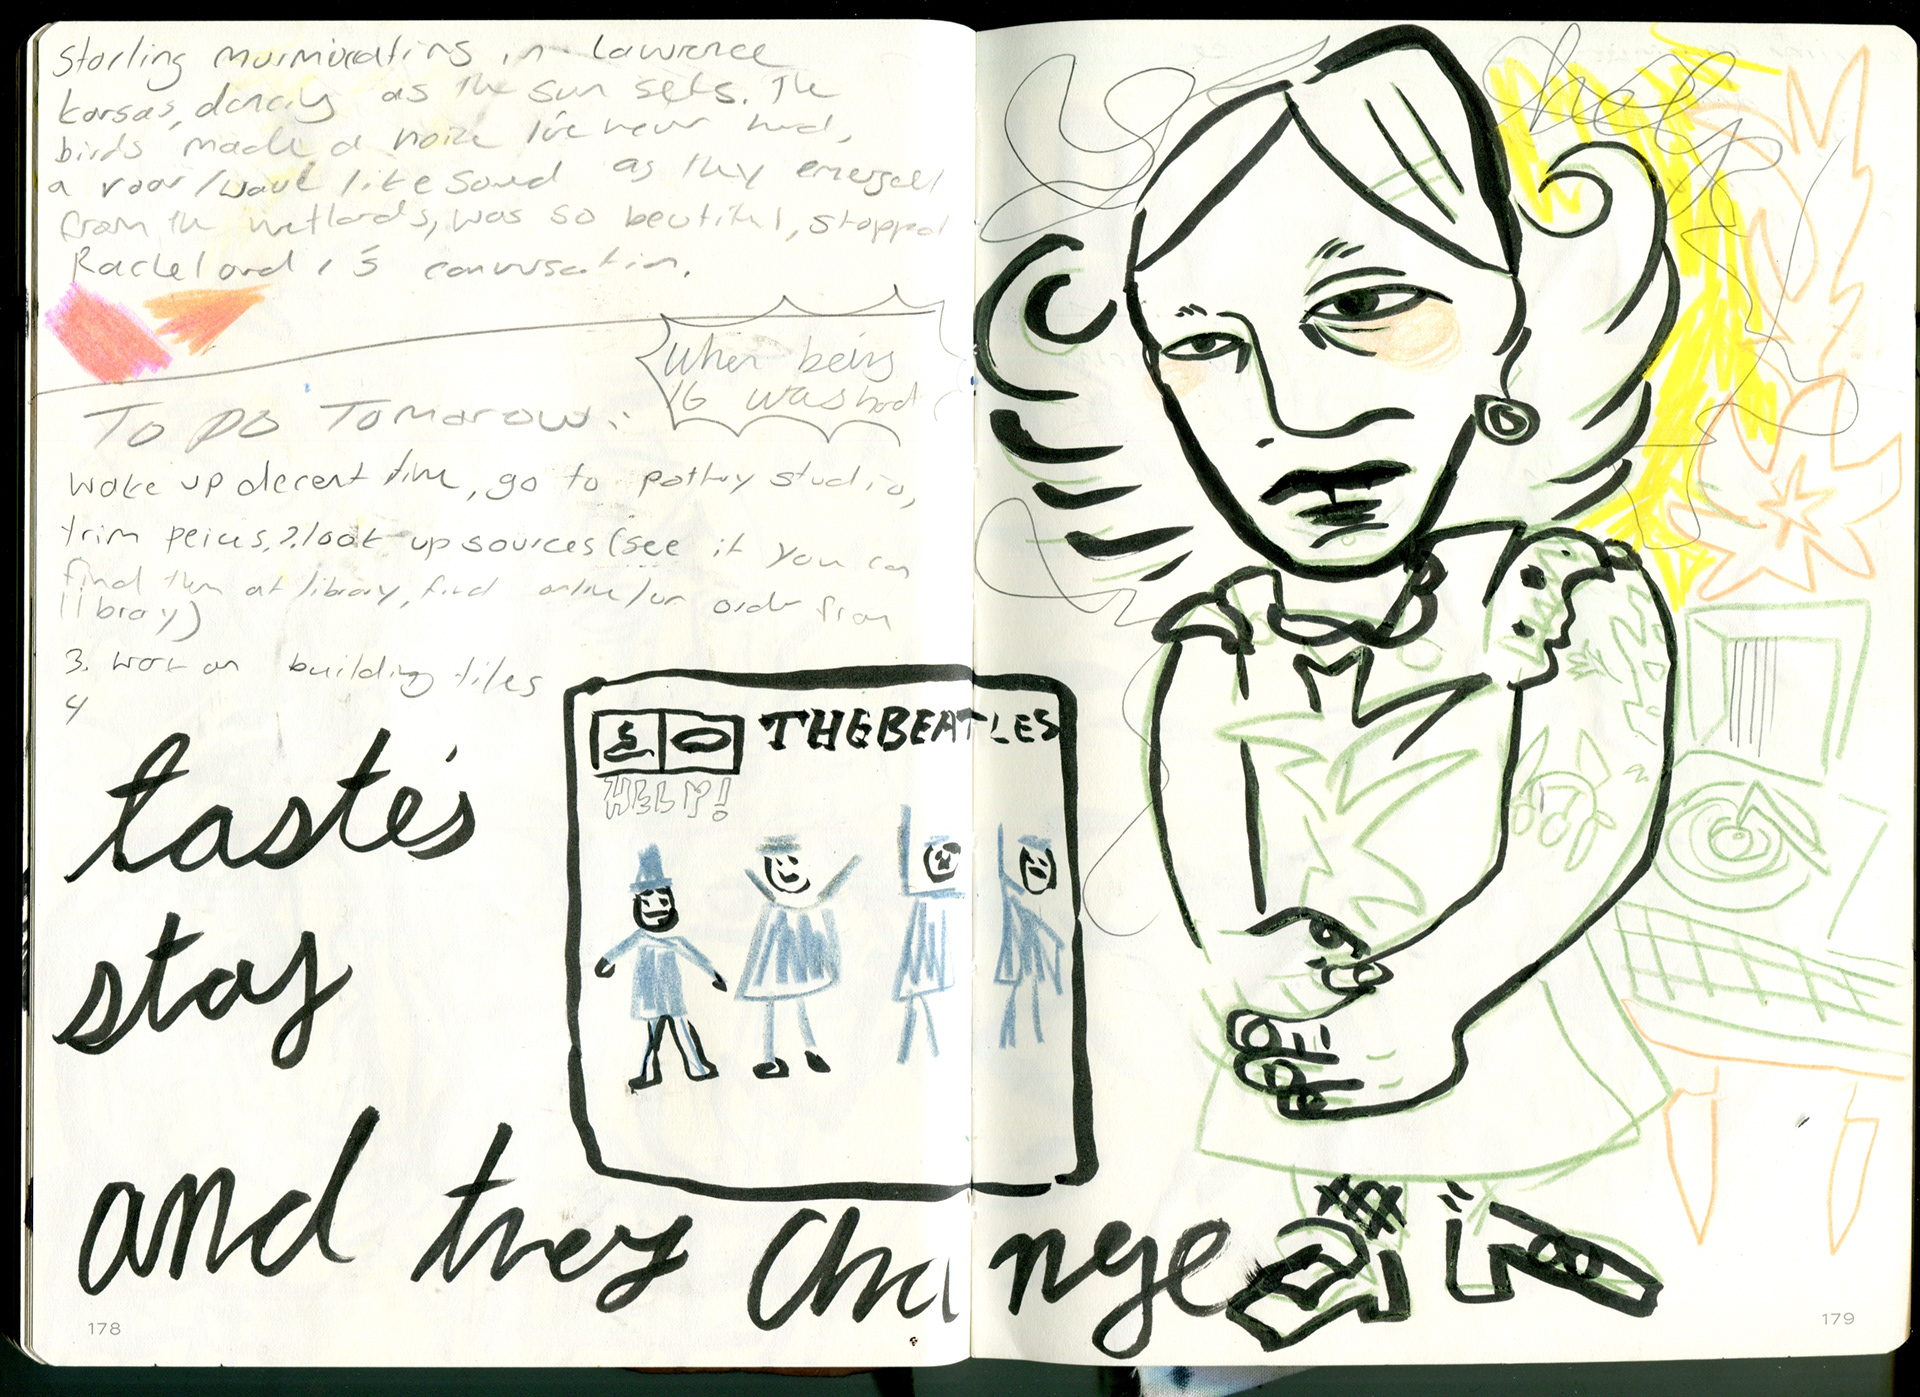 Starling murmurations in Lawrence
Karsas, dancing as the sun sets. The
birds made a noize I've never heard,
a roar/wave like sound as they emerged
from the wetlands, was so beutiful, stopped
Rachel and I's conversation.
When being
16 was hard
To DO Tomarow:
Wake up decent time, go to pottery studio,
trim peices, 2. look up sources (see if you can
find them at library, find online/or order from
library)
3. work on building tiles
4
tastes
stay
and they change
THE BEATLES
HELP!
help
178
179